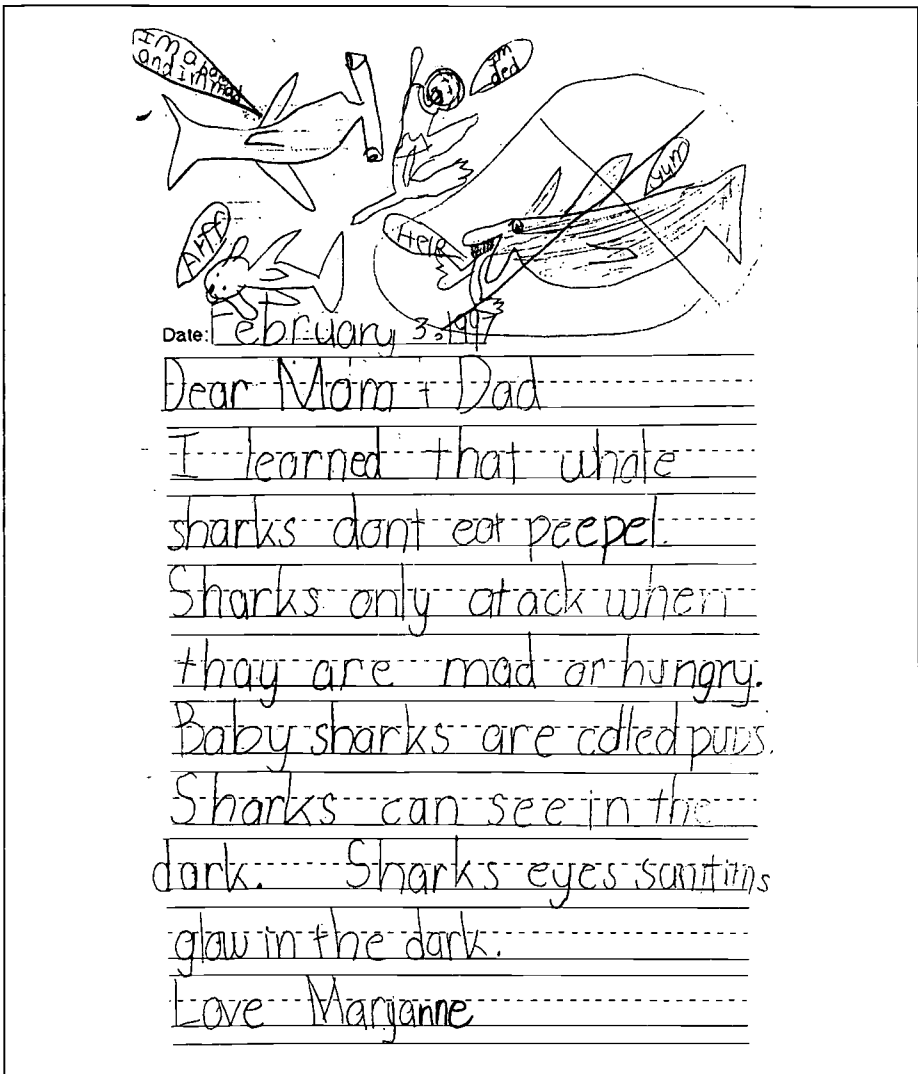 I'm a ham
and i'm mad
Im
ded
Yum
Help
Arff
Date: February 3, 1997
Dear Mom + Dad
I learned that whale
sharks dont eat peepel.
Sharks only atack when
thay are mad or hungry.
Baby sharks are called pups.
Sharks can see in the
dark. Sharks eyes
glow in the dark.
Love Maryanne